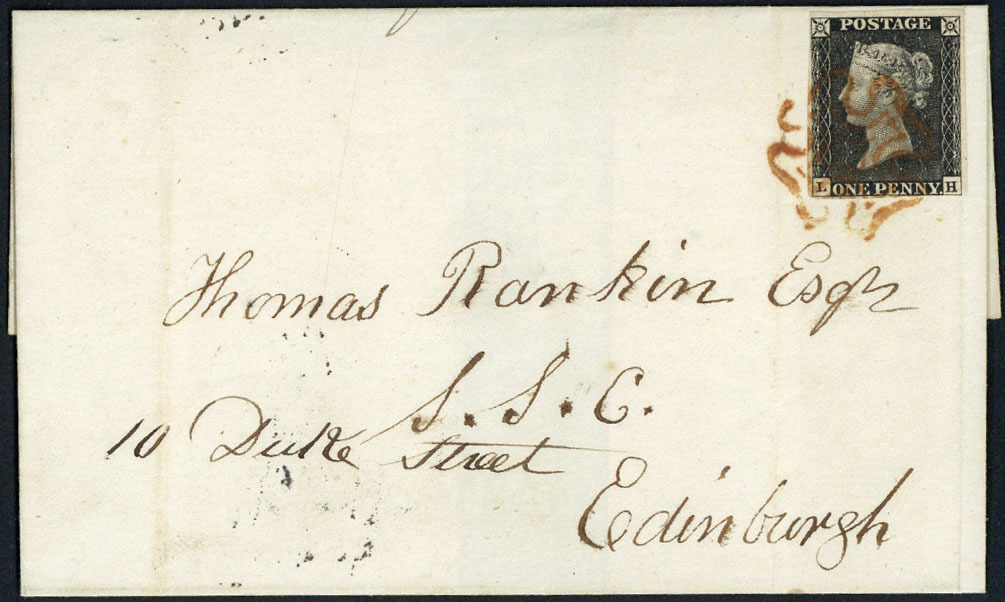 POSTAGE
L ONE PENNY. H
Thomas Rankin Esqr
S. S. C.
10 Duke Street
Edinburgh